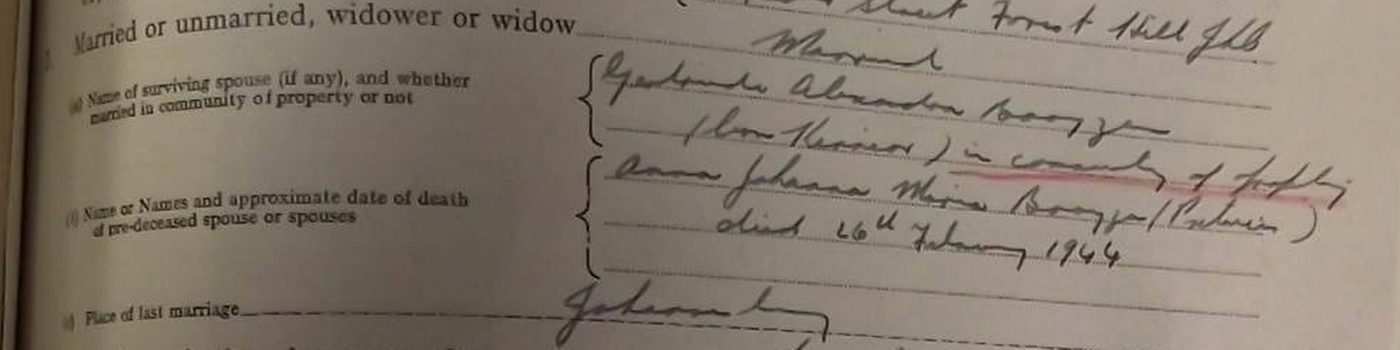 Street Forest Hill Jhb
Married or unmarried, widower or widow Married
(a) Name of surviving spouse (if any), and whether
married in community of property or not
Alexandra
(born ) in community of property
(b) Name or Names and approximate date of death
of pre-deceased spouse or spouses
Anna Johanna Maria (Pretorius)
died 26th February 1944
(c) Place of last marriage Johannesburg